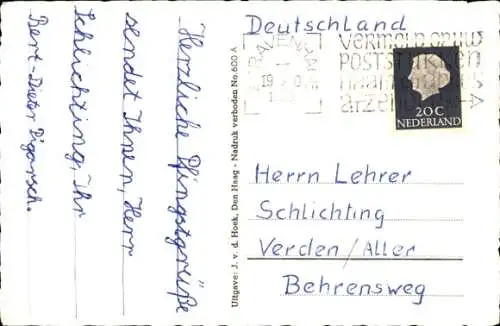 Herzliche Pfingstgrüße
sendet Ihnen, Herr
Schlichting, Ihr
Bert-Dieter
Uitgave: J. v. d. Hoek, Den Haag - Nadruk verboden No. 600 A
Deutschland
POSTSTUKKEN
20 C
NEDERLAND
Herrn Lehrer
Schlichting
Verden/Aller
Behrensweg